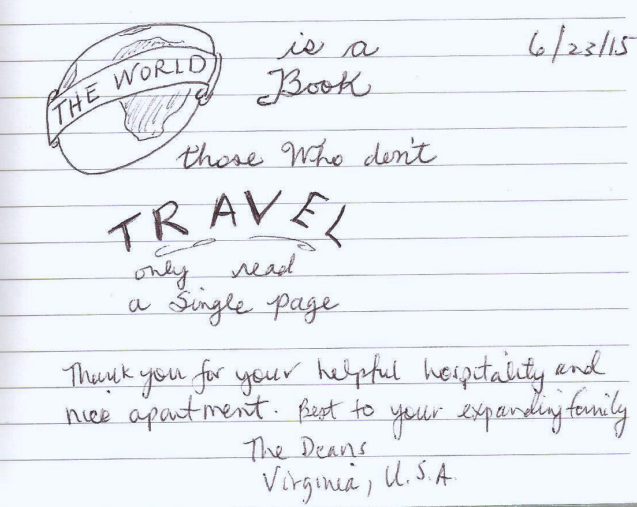 THE WORLD is a 6/23/15
Book
those Who don't
TRAVEL
only read
a Single page
Thank you for your helpful hospitality and
nice apartment. Best to your expanding family
The Deans
Virginia, U.S.A.